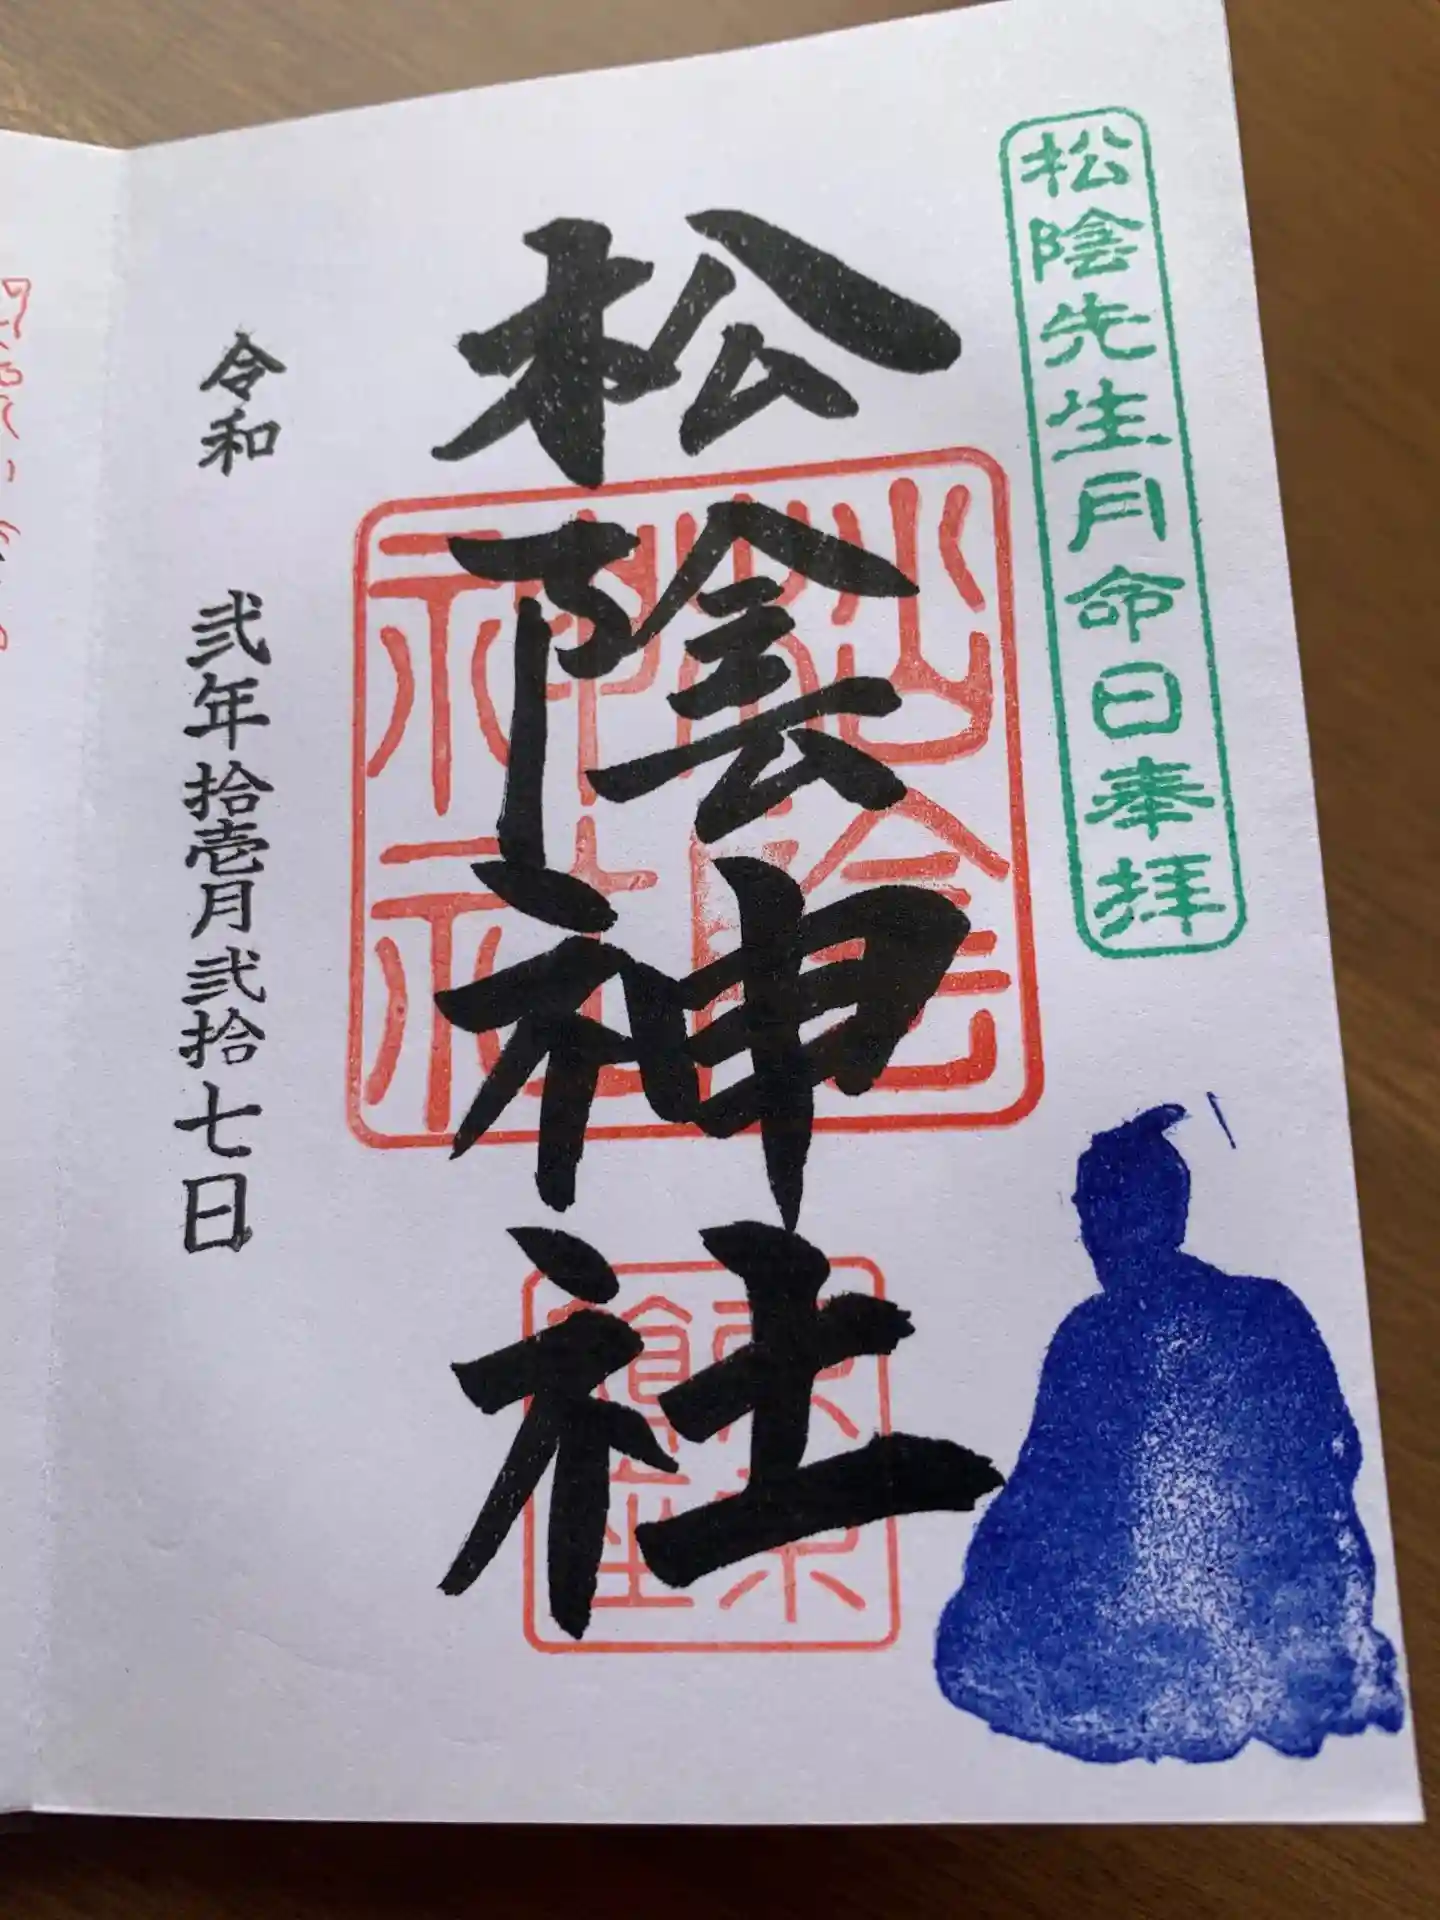 松陰先生月命日奉拝
松陰神社
松陰神社
東京
鎮座
令和 弐年拾壱月弐拾七日